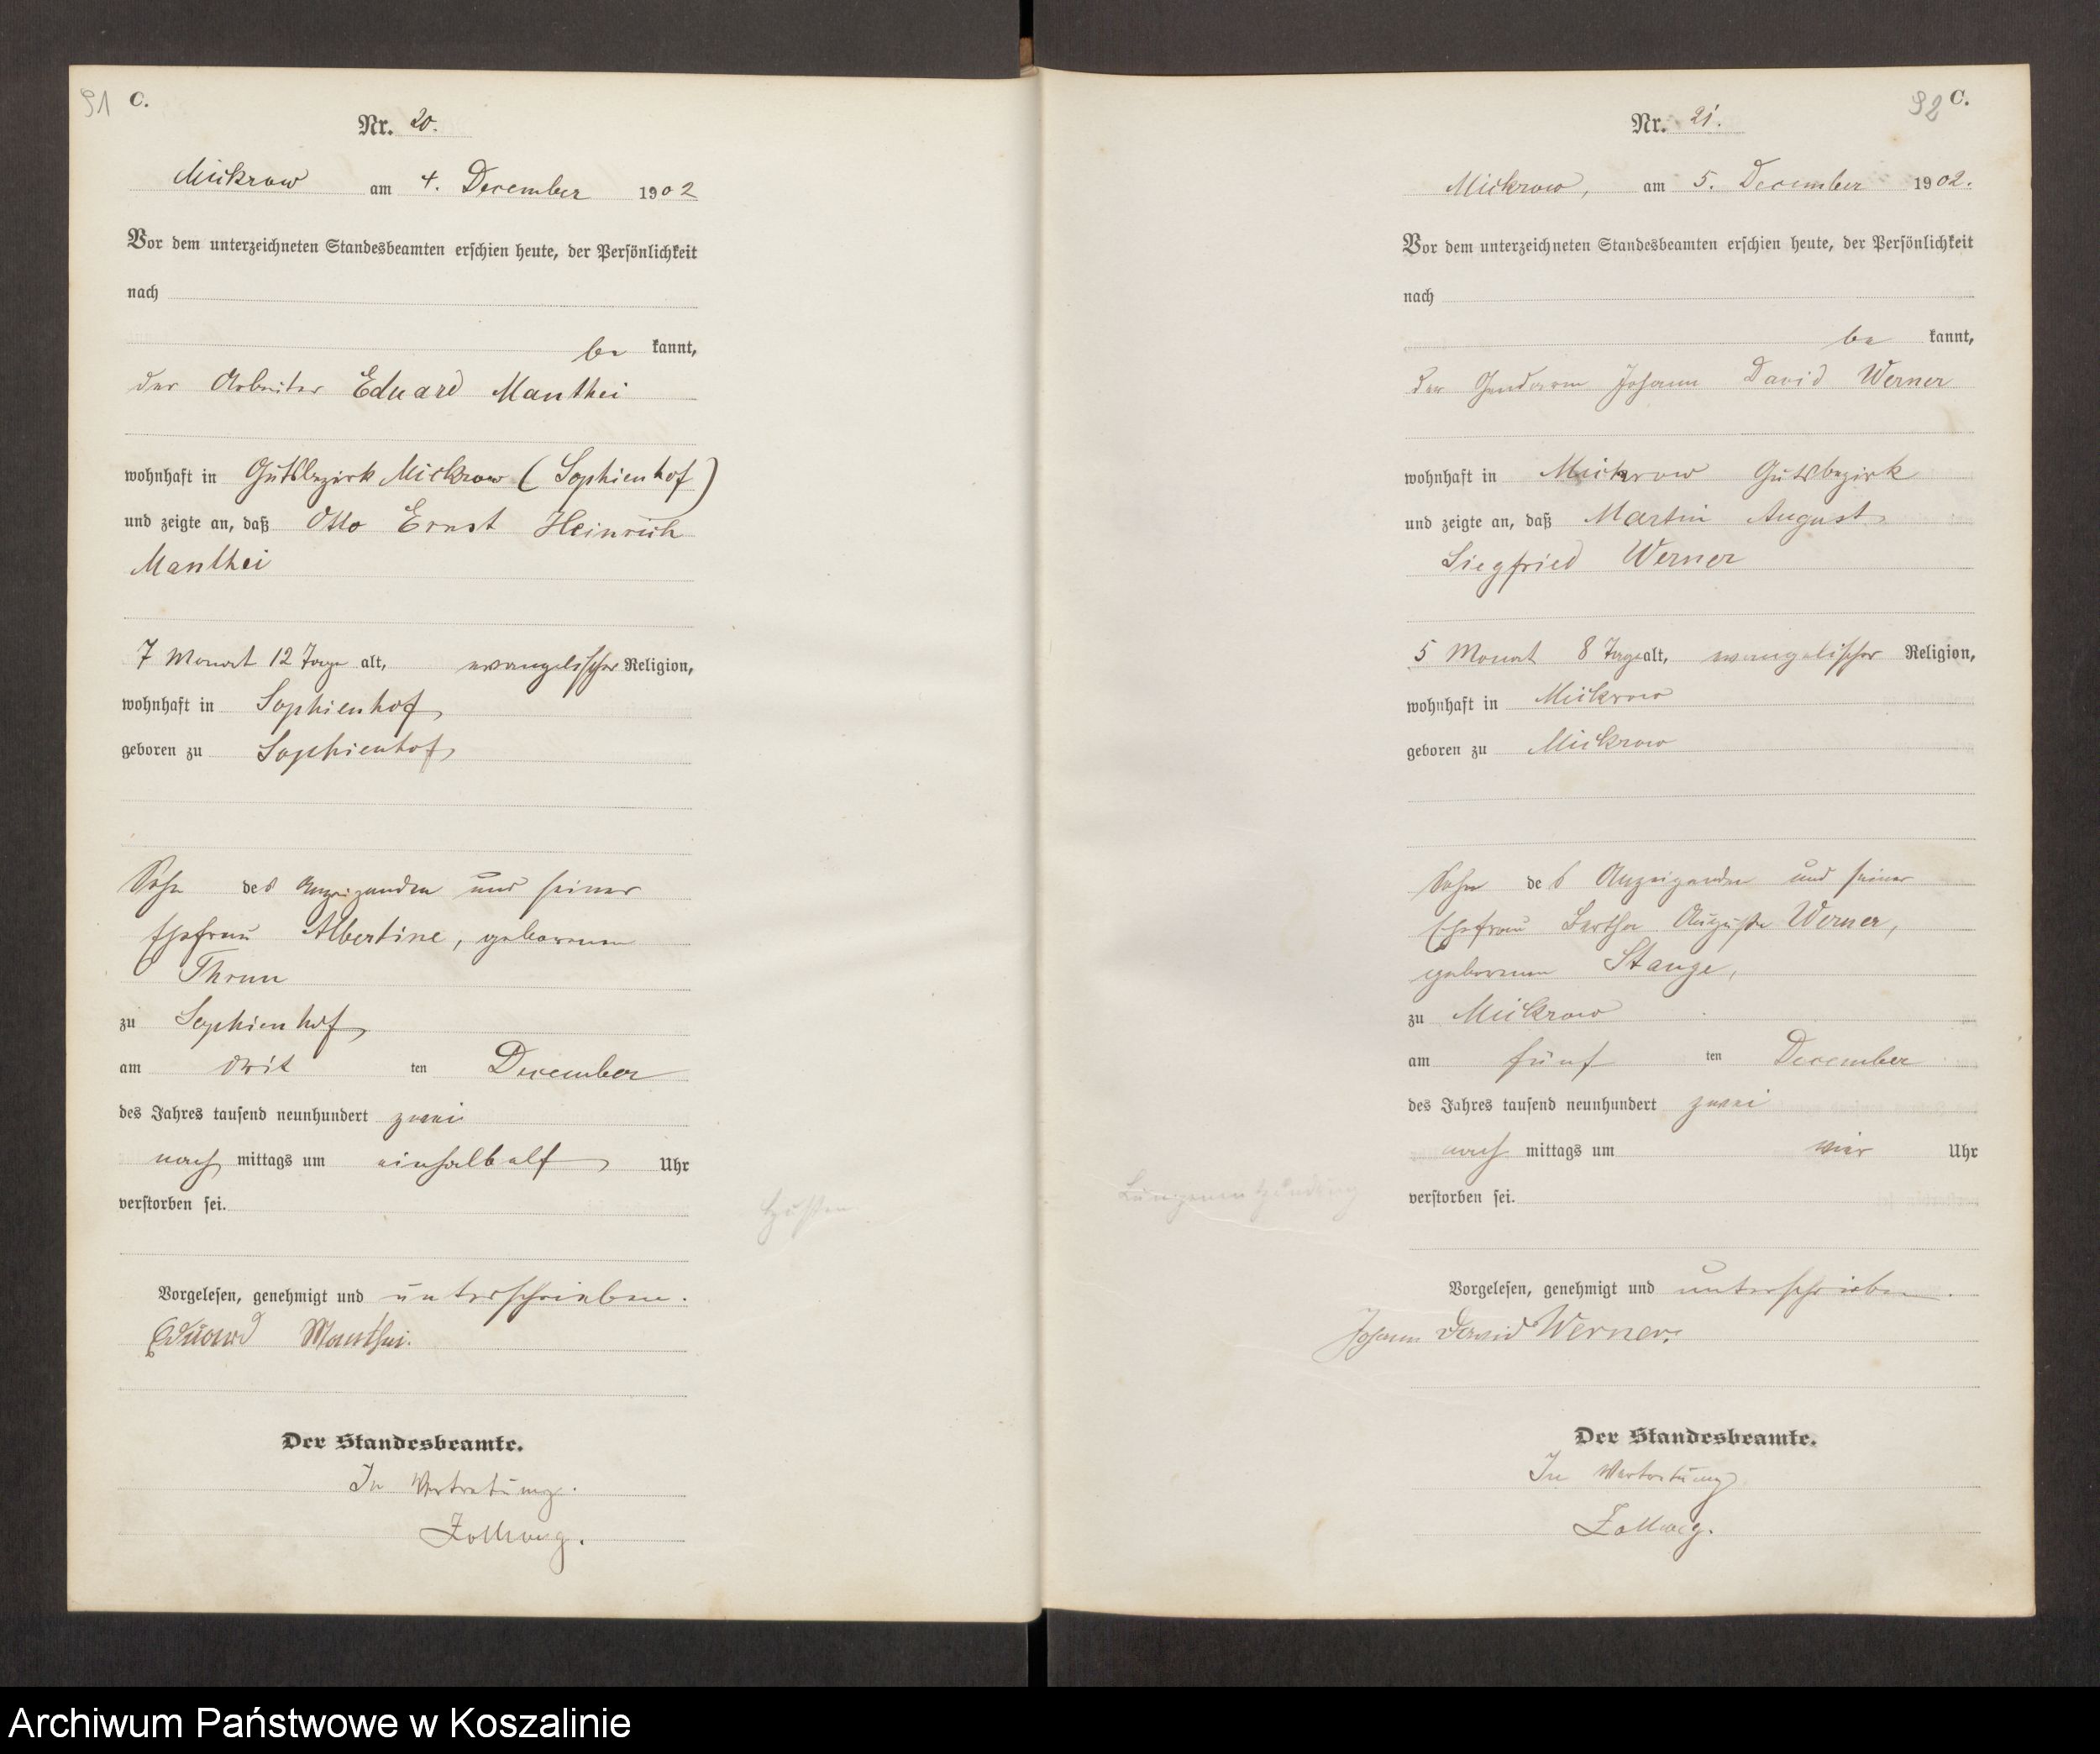 91 C.
Nr. 20.
Mickrow am 4. December 1902
Vor dem unterzeichneten Standesbeamten erschien heute, der Persönlichkeit
nach
be kannt,
der Arbeiter Eduard Manthei
wohnhaft in Gutsbezirk Mickrow (Sophienhof)
und zeigte an, daß Otto Ernst Heinrich
Manthei
7 Monat 12 Tage alt, evangelischer Religion,
wohnhaft in Sophienhof
geboren zu Sophienhof
Sohn des Anzeigenden und seiner
Ehefrau Albertine, geborenen
Thrun
zu Sophienhof
am drit ten December
des Jahres tausend neunhundert zwei
nach mittags um einhalb elf Uhr
verstorben sei.
Husten
Vorgelesen, genehmigt und unterschrieben.
Eduard Manthei.
Der Standesbeamte.
In Vertretung.
Zollweg.
92 C.
Nr. 21.
Mickrow, am 5. December 1902.
Vor dem unterzeichneten Standesbeamten erschien heute, der Persönlichkeit
nach
be kannt,
der Gendarm Johann David Werner
wohnhaft in Mickrow Gutsbezirk
und zeigte an, daß Martin August
Siegfried Werner
5 Monat 8 Tage alt, evangelischer Religion,
wohnhaft in Mickrow
geboren zu Mickrow
Sohn des Anzeigenden und seiner
Ehefrau Bertha Auguste Werner,
geborenen Stange,
zu Mickrow
am fünf ten December
des Jahres tausend neunhundert zwei
nach mittags um vier Uhr
verstorben sei.
Lungenentzündung
Vorgelesen, genehmigt und unterschrieben.
Johann David Werner.
Der Standesbeamte.
In Vertretung
Zollweg.
Archiwum Państwowe w Koszalinie